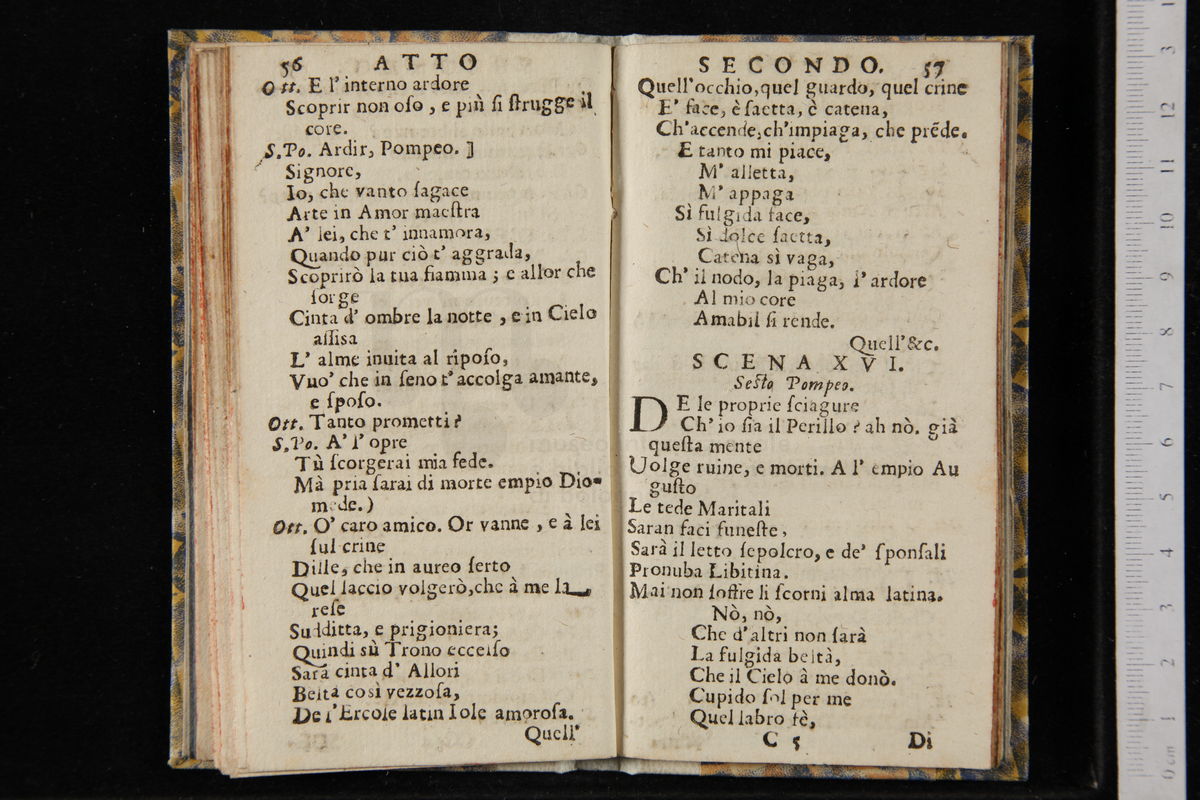 56 ATTO
Ott. E l' interno ardore
Scoprir non oſo , e più ſi ſtrugge il
core.
S.Po. Ardir, Pompeo. ]
Signore,
Io, che vanto ſagace
Arte in Amor maeſtra
A' lei, che t' innamora,
Quando pur ciò t' aggrada,
Scoprirò la tua fiamma ; e allor che
ſorge
Cinta d' ombre la notte , e in Cielo
aſſiſa
L' alme inuita al ripoſo,
Vuo' che in ſeno t' accolga amante,
e ſpoſo.
Ott. Tanto prometti?
S.Po. A' l' opre
Tù ſcorgerai mia fede.
Mà pria ſarai di morte empio Dio-
mede.)
Ott. O' caro amico. Or vanne , e à lei
ſul crine
Dille, che in aureo ſerto
Quel laccio volgerò,che à me la
reſe
Sudditta, e prigioniera;
Quindi sù Trono ecceiſo
Sarà cinta d' Allori
Beltà così vezzoſa,
De l'Ercole latin Iole amoroſa.
Quell'
SECONDO. 57
Quell'occhio,quel guardo, quel crine
E' face, è ſaetta, è catena,
Ch'accende,ch'impiaga, che prẽde.
E tanto mi piace,
M' alletta,
M' appaga
Sì fulgida face,
Sì dolce ſaetta,
Catena sì vaga,
Ch' il nodo, la piaga, l' ardore
Al mio core
Amabil ſi rende.
Quell'&c.
SCENA XVI.
Seſto Pompeo.
DE le proprie ſciagure
Ch' io ſia il Perillo ? ah nò. già
queſta mente
Uolge ruine, e morti. A l' empio Au
guſto
Le tede Maritali
Saran faci funeſte,
Sarà il letto ſepolcro, e de' ſponſali
Pronuba Libitina.
Mai non ſoffre li ſcorni alma latina.
Nò, nò,
Che d'altri non ſarà
La fulgida beltà,
Che il Cielo à me donò.
Cupido ſol per me
Quel labro fè,
C 5 Di
0 cm 1 2 3 4 5 6 7 8 9 10 11 12 3